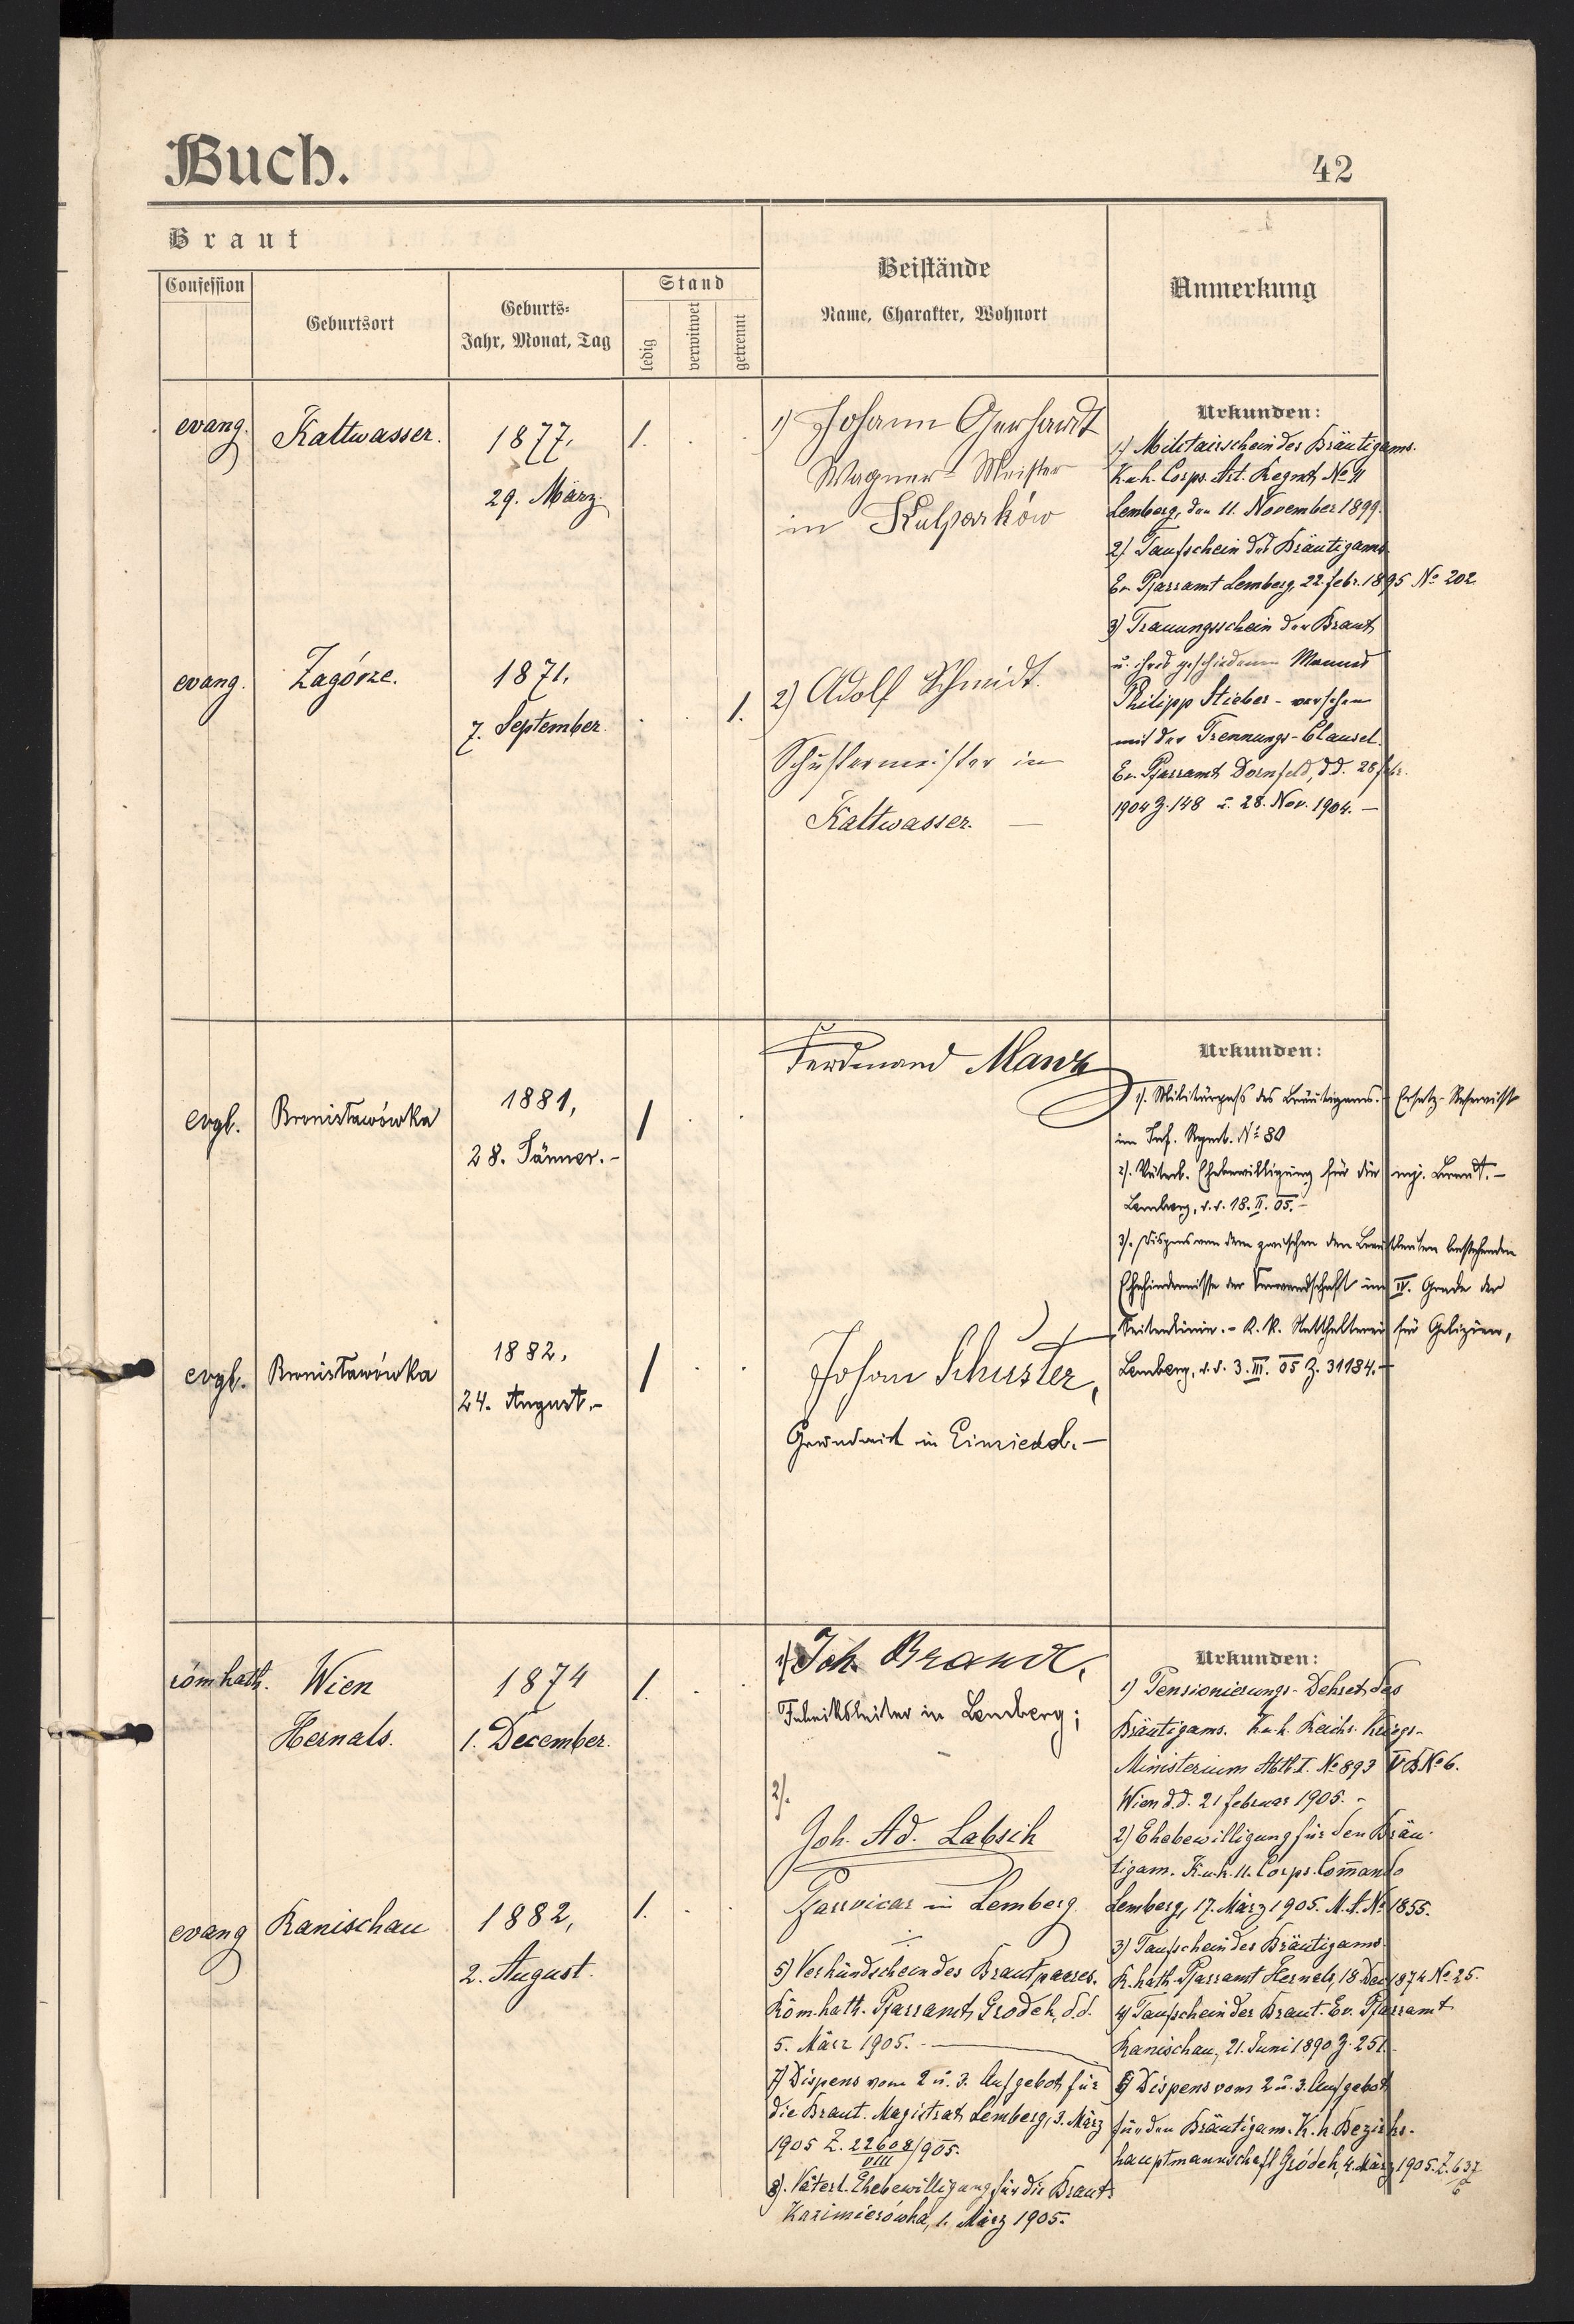 Buch.
42
Braut
Confession
Geburtsort
Geburts-
Jahr, Monat, Tag
Stand
ledig
verwitwet
getrennt
Beistände
Name, Charakter, Wohnort
Anmerkung
evang.
Kaltwasser.
1877,
29. März
1.
1) Johann Gerhardt
Wagner-Meister
in Kulparków
evang.
Zagórze.
1871,
7. September.
1.
2) Adolf Schmidt.
Schustermeister in
Kaltwasser. —
Urkunden:
1) Militairschein des Bräutigams.
K.u.k. Corps. Art. Regmt No 11
Lemberg, den 11. November 1899.
2) Taufschein des Bräutigams.
Ev. Pfarramt Lemberg, 22. febr. 1895 No 202.
3) Trauungsschein der Braut
u. ihres geschiedenen Mannes
Philipp Stieber - versehen
mit der Trennungs-Clausel.
Ev. Pfarramt Dornfeld, d.d. 28 febr.
1904 Z. 148 u. 28. Nov. 1904. —
evgl.
Bronisławówka
1881,
28. Jänner.-
1
Ferdinand Manz
evgl.
Bronisławówka
1882,
24. August.-
1
Johan Schuster,
Grundwirt in Einsiedel.—
Urkunden:
1). Militärpaß des Bräutigams.- Ersatz-Reservist
im Inf. Regmt. No 80
2). Väterl. Ehebewilligung für die mj. Braut.—
Lemberg, d.d. 18. II. 05.-
3). Dispens von dem zwischen den Brautleuten bestehenden
Ehehindernisse der Verwandschaft im IV. Grade der
Seitenlinie.- K. K. Statthalterei für Galizien,
Lemberg, d.d. 3. III. 05 Z. 31184.—
röm kath.
Wien
Hernals.
1874
1. December.
1.
1) Joh. Brand,
Fabriksleiter in Lemberg;
2).
Joh. Ad. Labsik
Pfarrvicar in Lemberg
evang
Ranischau
1882,
2. August.
1.
5) Verkündschein des Brautpaares.
Röm. kath. Pfarramt Grodek, d.d.
5. März 1905. —
7) Dispens vom 2 u. 3. Aufgebot für
die Braut. Magistrat Lemberg, 3. März
1905 Z. 22608/VIII/905.
8). Väterl. Ehebewilligung für die Braut:
Kazimierówka, 1. März 1905.
Urkunden:
1) Pensionierungs-Dekret des
Bräutigams. K.u.k. Reichs-Kriegs-
Ministerium Abth. I. No 893 V B No 6.
Wien d.d. 21 februar 1905. -
2) Ehebewilligung für den Bräu-
tigam. K.u.k. 11. Corps-Com̄ando
Lemberg, 17. März 1905. M.A. No 1855.
3) Taufschein des Bräutigams.
R. kath. Pfarramt Hernals, 18 Dec 1874 No 25.
4) Taufschein der Braut. Ev. Pfarramt
Ranischau, 21. Juni 1890 Z. 251.
6) Dispens vom 2 u. 3. Aufgebot
für den Bräutigam. K. k. Bezirks-
hauptmannschaft Gródek, 4. März 1905. Z. 637/6